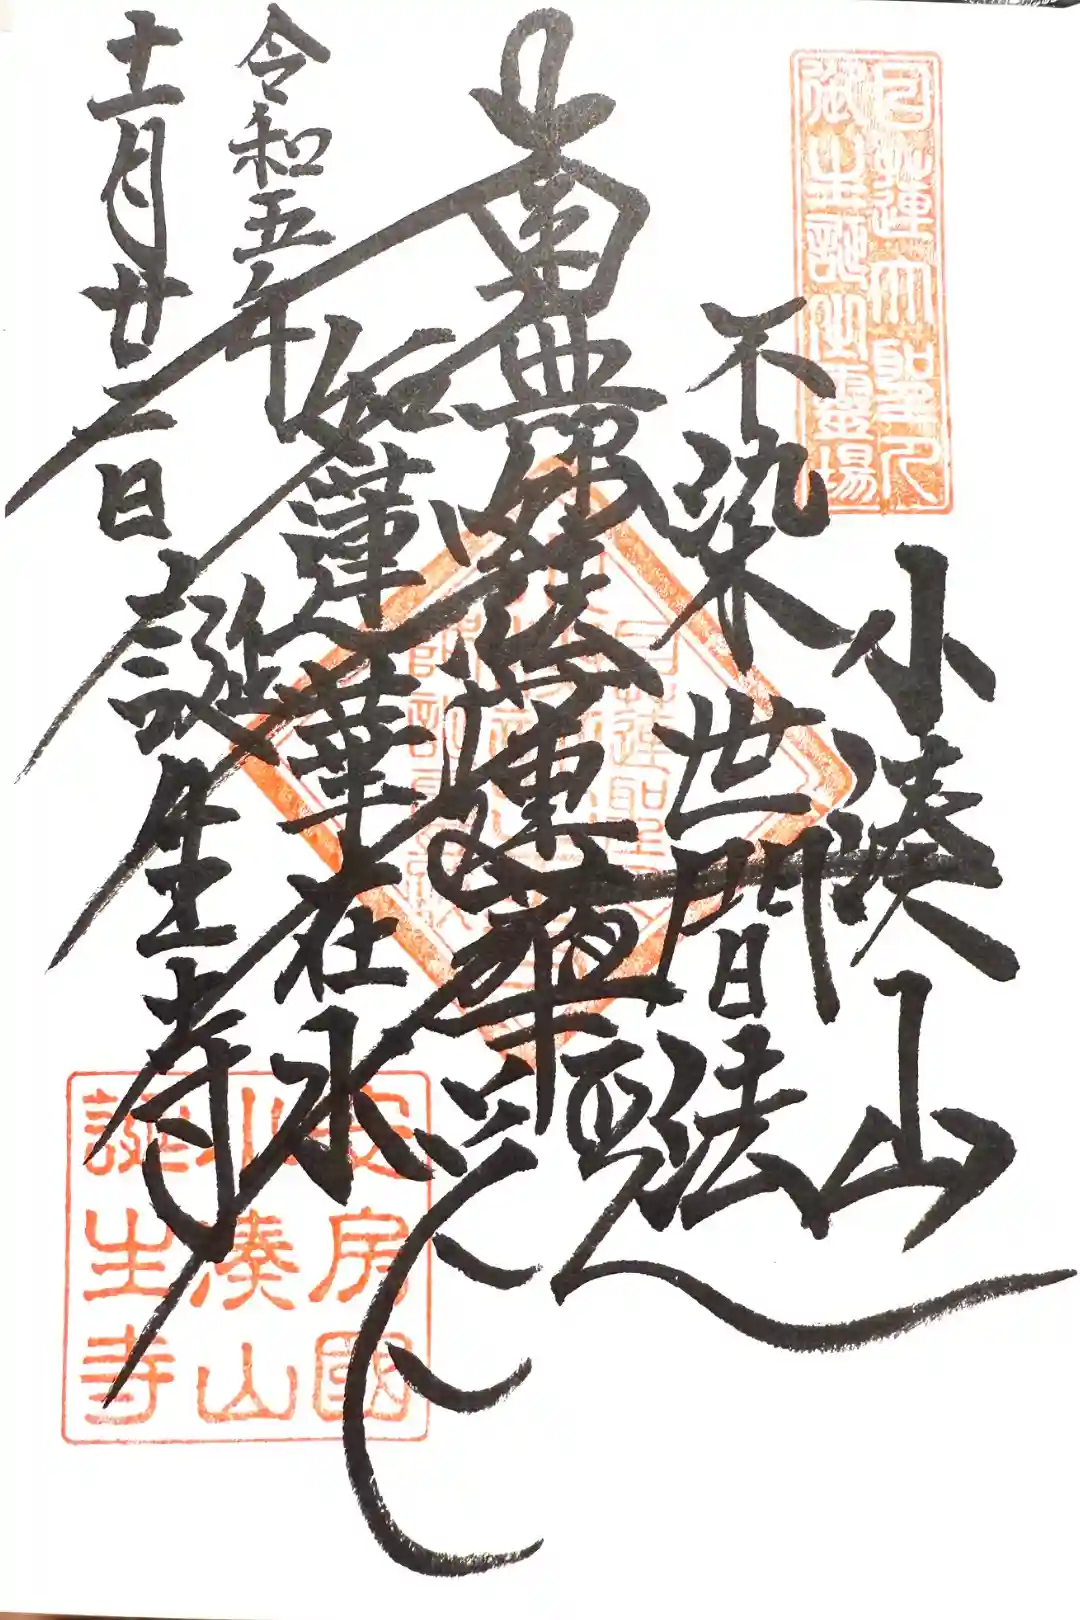 日蓮大聖人
御生誕之靈場
小湊山
不染世間法
南無妙法蓮華経
如蓮華在水
令和五年
十一月廿二日
誕生寺
安房國
小湊山
誕生寺